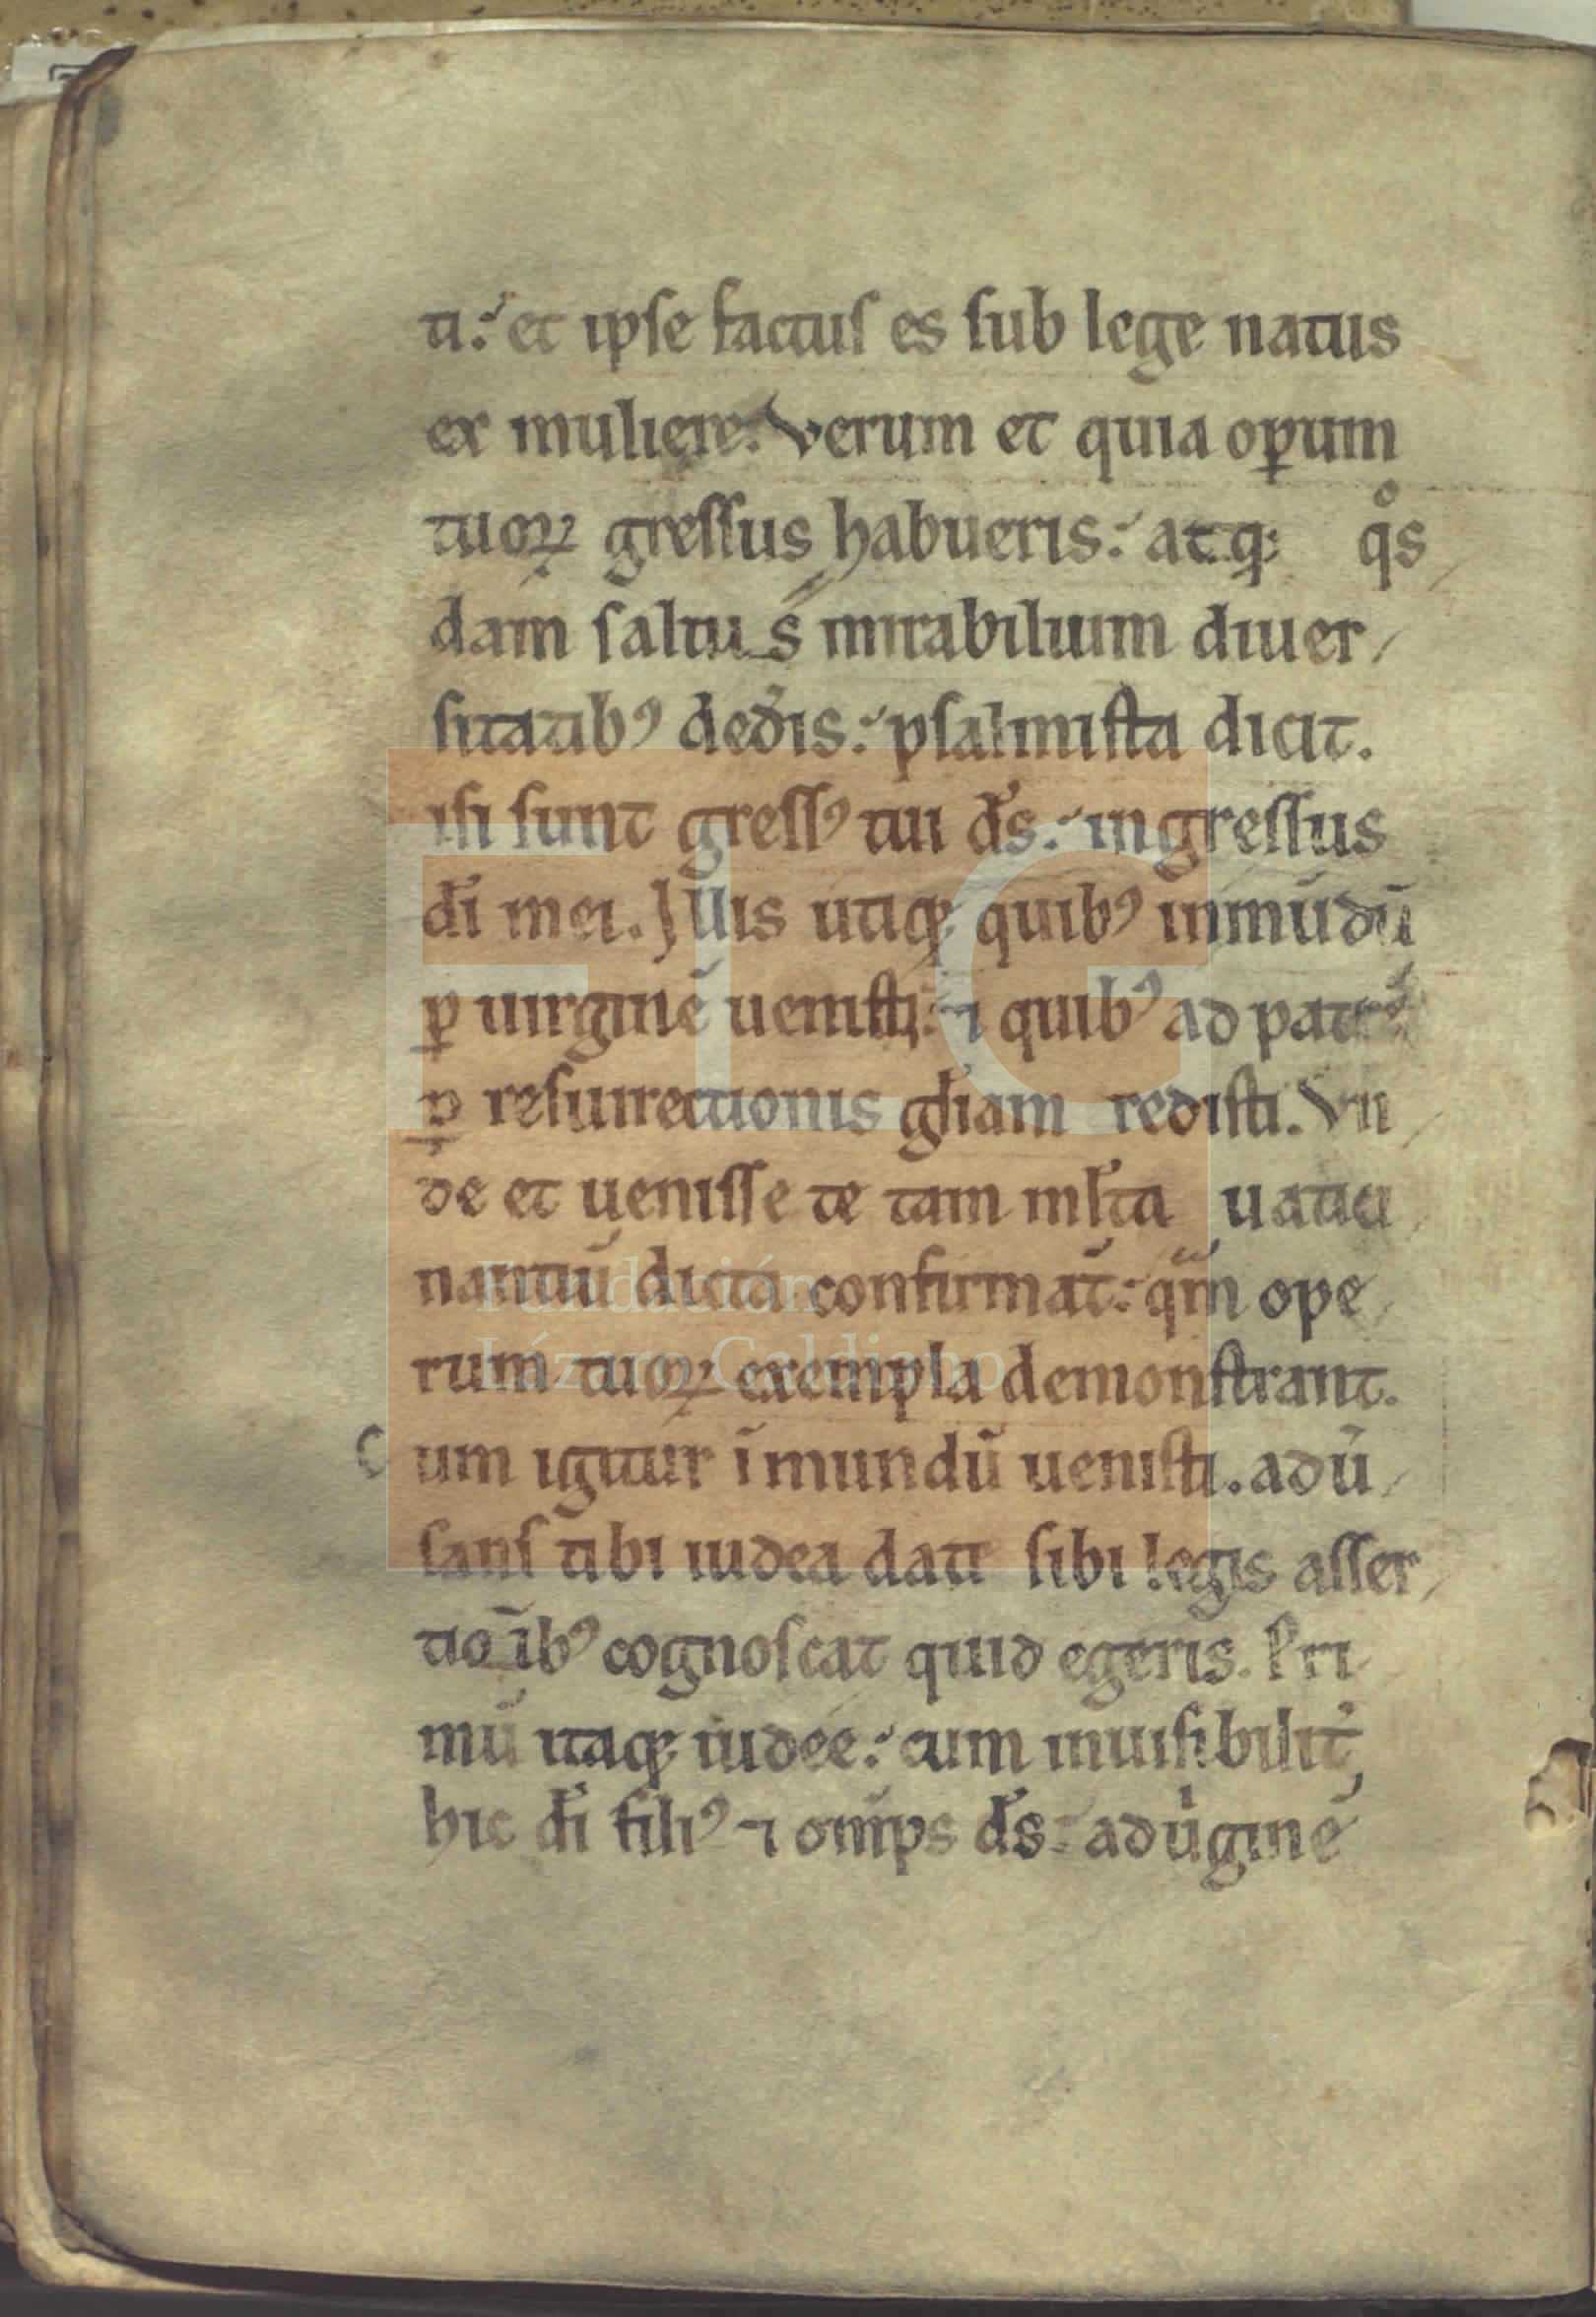 ti: et ipse factus es sub lege natus
ex muliere. Verum et quia oꝑum
tuoꝝ gressus habueris: atq; qͦs
dam saltus mirabilium diuer
sitatibꝰ ded̾is: psalmista dicit.
isi sunt gressꝰ tui ds̄: ingressus
dī mei. Illis utiq; quibꝰ inmūdū
ꝑ uirginē uenisti: ⁊ quibꝰ ad patrē
ꝑ resurrectionis gl̄iam redisti. Vn
de et uenisse te tam ml̄ta uatici
nantiū dicta confirmāt: qm̄ ope
rum tuoꝝ exempla demonstrant.
Cum igitur ī mundū uenisti. adū
sans tibi iudea dati sibi legis asser
tiōibꝰ cognoscat quid egeris. Pri
mū itaq; iudee: cum inuisibilit̾
hic dī filiꝰ ⁊ omīps ds̄: adu̾ginē
Fundación
Lázaro Galdiano
FLG